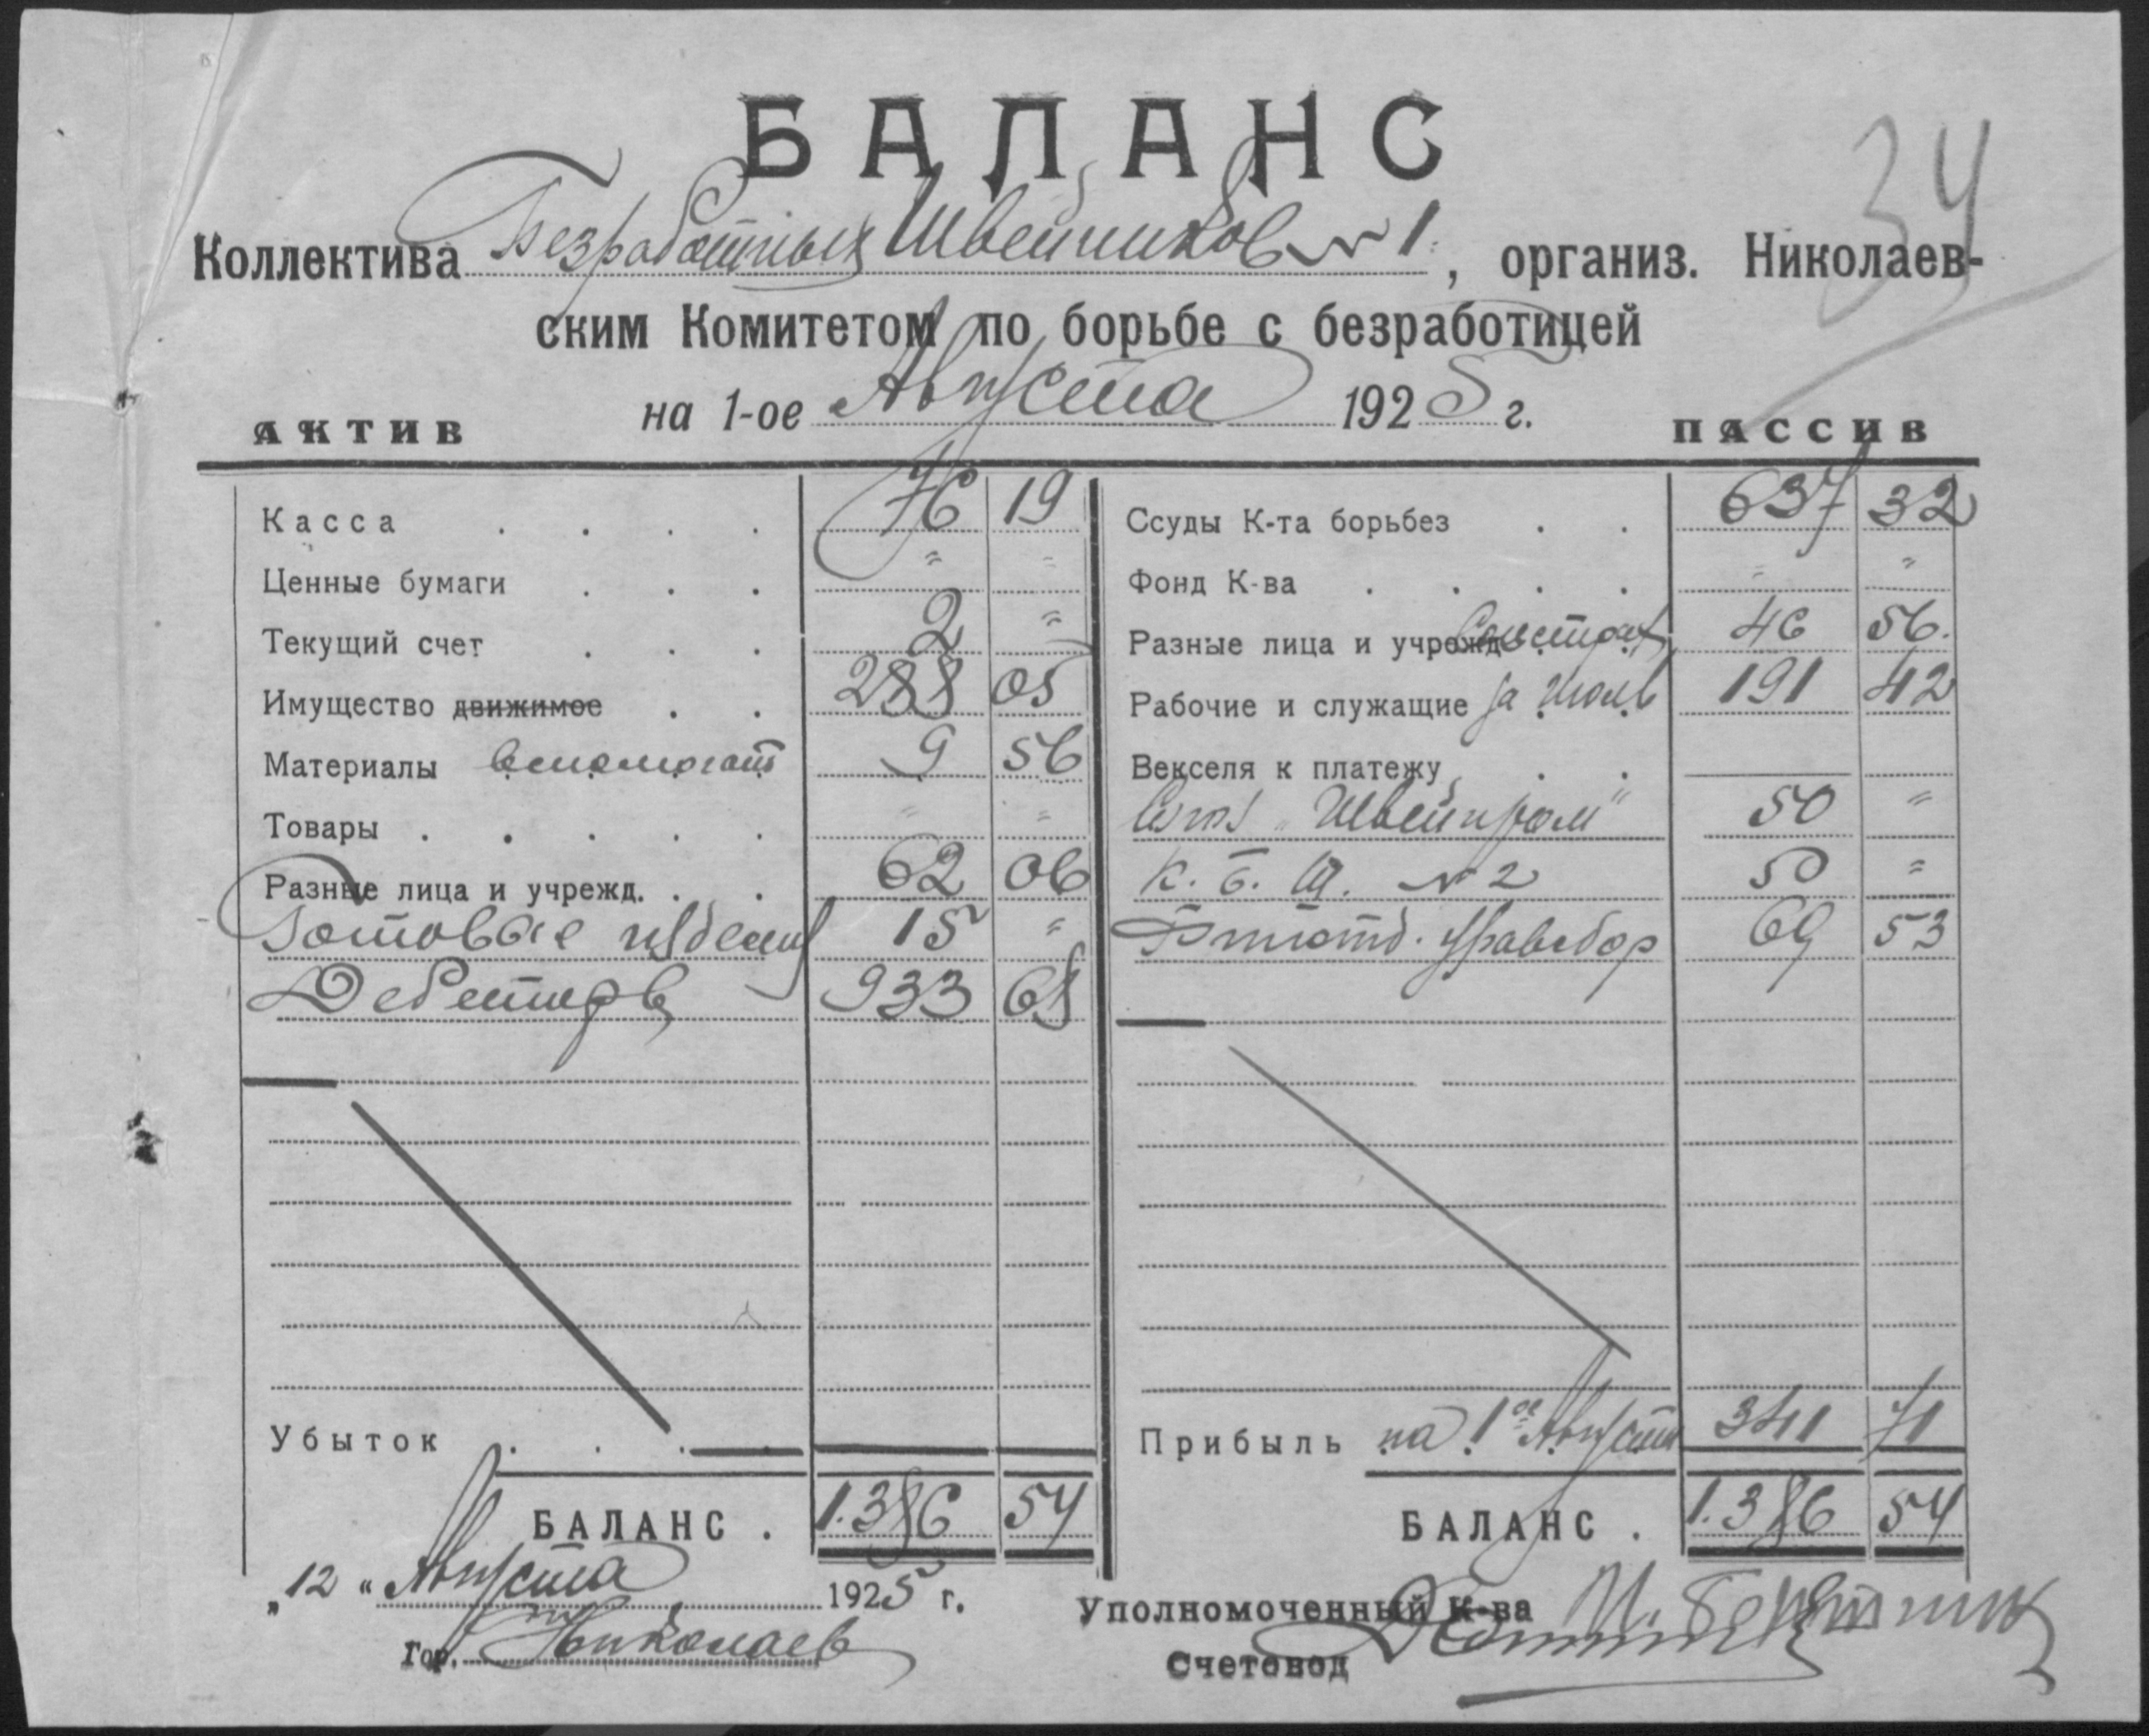 34
БАЛАНС
Коллектива Безработных Швейников № 1, организ. Николаев-
ским Комитетом по борьбе с безработицей
на 1-ое Августа 1925 г.
АКТИВ ПАССИВ
Касса . . . . 76 19 Ссуды К-та борьбез . . 637 32
Ценные бумаги . . . " " Фонд К-ва . . . . " "
Текущий счет . . . 2 " Разные лица и учрежд. 46 56.
Имущество движимое . . 288 05 Рабочие и служащие за Июль 191 42
Материалы вспомогат 9 56 Векселя к платежу . .
Товары . . . . . " " "Швейпром" 50 "
Разные лица и учрежд. . . 62 06 К. Б. Ш. № 2 50 "
Готовые изделия 15 " 69 53
Дебиторы 933 68
Убыток . . . Прибыль на 1ое Августа 341 71
БАЛАНС . 1.386 54 БАЛАНС . 1.386 54
„12" Августа 1925 г. Уполномоченный К-ва
Гор. Николаев Счетовод